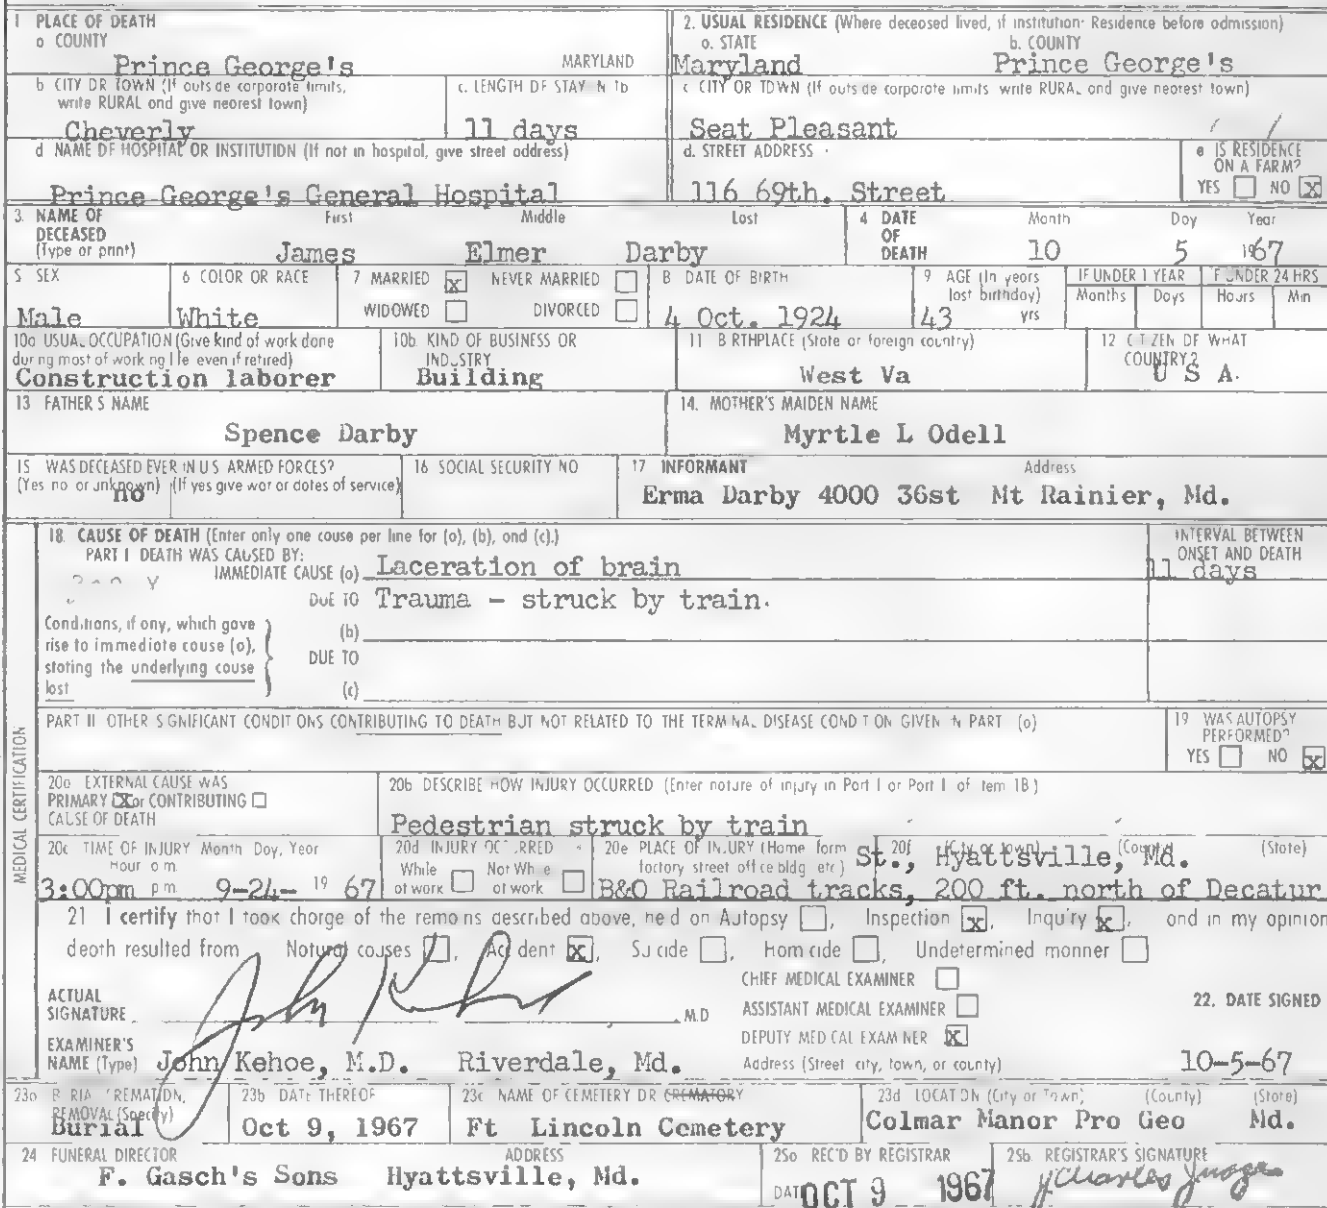 1 PLACE OF DEATH
a COUNTY
Prince George's MARYLAND
2. USUAL RESIDENCE (Where deceased lived, if institution: Residence before admission)
a. STATE b. COUNTY
Maryland Prince George's
b CITY OR TOWN (If outside corporate limits,
write RURAL and give nearest town)
Cheverly
c. LENGTH OF STAY IN 1b
11 days
c CITY OR TOWN (If outside corporate limits write RURAL and give nearest town)
Seat Pleasant
d NAME OF HOSPITAL OR INSTITUTION (If not in hospital, give street address)
Prince George's General Hospital
d. STREET ADDRESS
116 69th. Street
e IS RESIDENCE
ON A FARM?
YES NO X
3. NAME OF
DECEASED
(Type or print)
First Middle Last
James Elmer Darby
4 DATE
OF
DEATH
Month Day Year
10 5 1967
5 SEX
Male
6 COLOR OR RACE
White
7 MARRIED X NEVER MARRIED
WIDOWED DIVORCED
8 DATE OF BIRTH
4 Oct. 1924
9 AGE (In years
last birthday)
43 yrs
IF UNDER 1 YEAR
Months Days
IF UNDER 24 HRS
Hours Min
10a USUAL OCCUPATION (Give kind of work done
during most of working life even if retired)
Construction laborer
10b. KIND OF BUSINESS OR
INDUSTRY
Building
11 BIRTHPLACE (State or foreign country)
West Va
12 CITIZEN OF WHAT
COUNTRY?
U S A.
13 FATHER'S NAME
Spence Darby
14. MOTHER'S MAIDEN NAME
Myrtle L Odell
15 WAS DECEASED EVER IN U S ARMED FORCES?
(Yes no or unknown) (If yes give war or dates of service)
no
16 SOCIAL SECURITY NO
17 INFORMANT Address
Erma Darby 4000 36st Mt Rainier, Md.
18. CAUSE OF DEATH (Enter only one cause per line for (a), (b), and (c).)
PART I DEATH WAS CAUSED BY:
IMMEDIATE CAUSE (a) Laceration of brain
INTERVAL BETWEEN
ONSET AND DEATH
11 days
DUE TO Trauma - struck by train.
(b)
Conditions, if any, which gave
rise to immediate cause (a),
stating the underlying cause
last
DUE TO
(c)
PART II OTHER SIGNIFICANT CONDITIONS CONTRIBUTING TO DEATH BUT NOT RELATED TO THE TERMINAL DISEASE CONDITION GIVEN IN PART (a)
19 WAS AUTOPSY
PERFORMED?
YES NO X
MEDICAL CERTIFICATION
20a EXTERNAL CAUSE WAS
PRIMARY X or CONTRIBUTING
CAUSE OF DEATH
20b DESCRIBE HOW INJURY OCCURRED (Enter nature of injury in Part I or Part II of item 18)
Pedestrian struck by train
20c TIME OF INJURY Month Day, Year
Hour a m
3:00pm p m 9-24- 19 67
20d INJURY OCCURRED
While at work Not While at work
20e PLACE OF INJURY (Home farm
factory street office bldg etc)
B&O Railroad tracks, 200 ft. north of Decatur
20f (City or town) (County) (State)
St., Hyattsville, Md.
21 I certify that I took charge of the remains described above, held an Autopsy , Inspection X, Inquiry X, and in my opinion
death resulted from Natural causes , Accident X, Suicide , Homicide , Undetermined manner
ACTUAL
SIGNATURE John Kehoe M.D
CHIEF MEDICAL EXAMINER
ASSISTANT MEDICAL EXAMINER
DEPUTY MEDICAL EXAMINER X
22. DATE SIGNED
10-5-67
EXAMINER'S
NAME (Type) John Kehoe, M.D. Riverdale, Md.
Address (Street city, town, or county)
23a BURIAL CREMATION,
REMOVAL (Specify)
Burial
23b DATE THEREOF
Oct 9, 1967
23c NAME OF CEMETERY OR CREMATORY
Ft Lincoln Cemetery
23d LOCATION (City or Town) (County) (State)
Colmar Manor Pro Geo Md.
24 FUNERAL DIRECTOR ADDRESS
F. Gasch's Sons Hyattsville, Md.
25a REC'D BY REGISTRAR
DATE OCT 9 1967
25b REGISTRAR'S SIGNATURE
Charles Judge